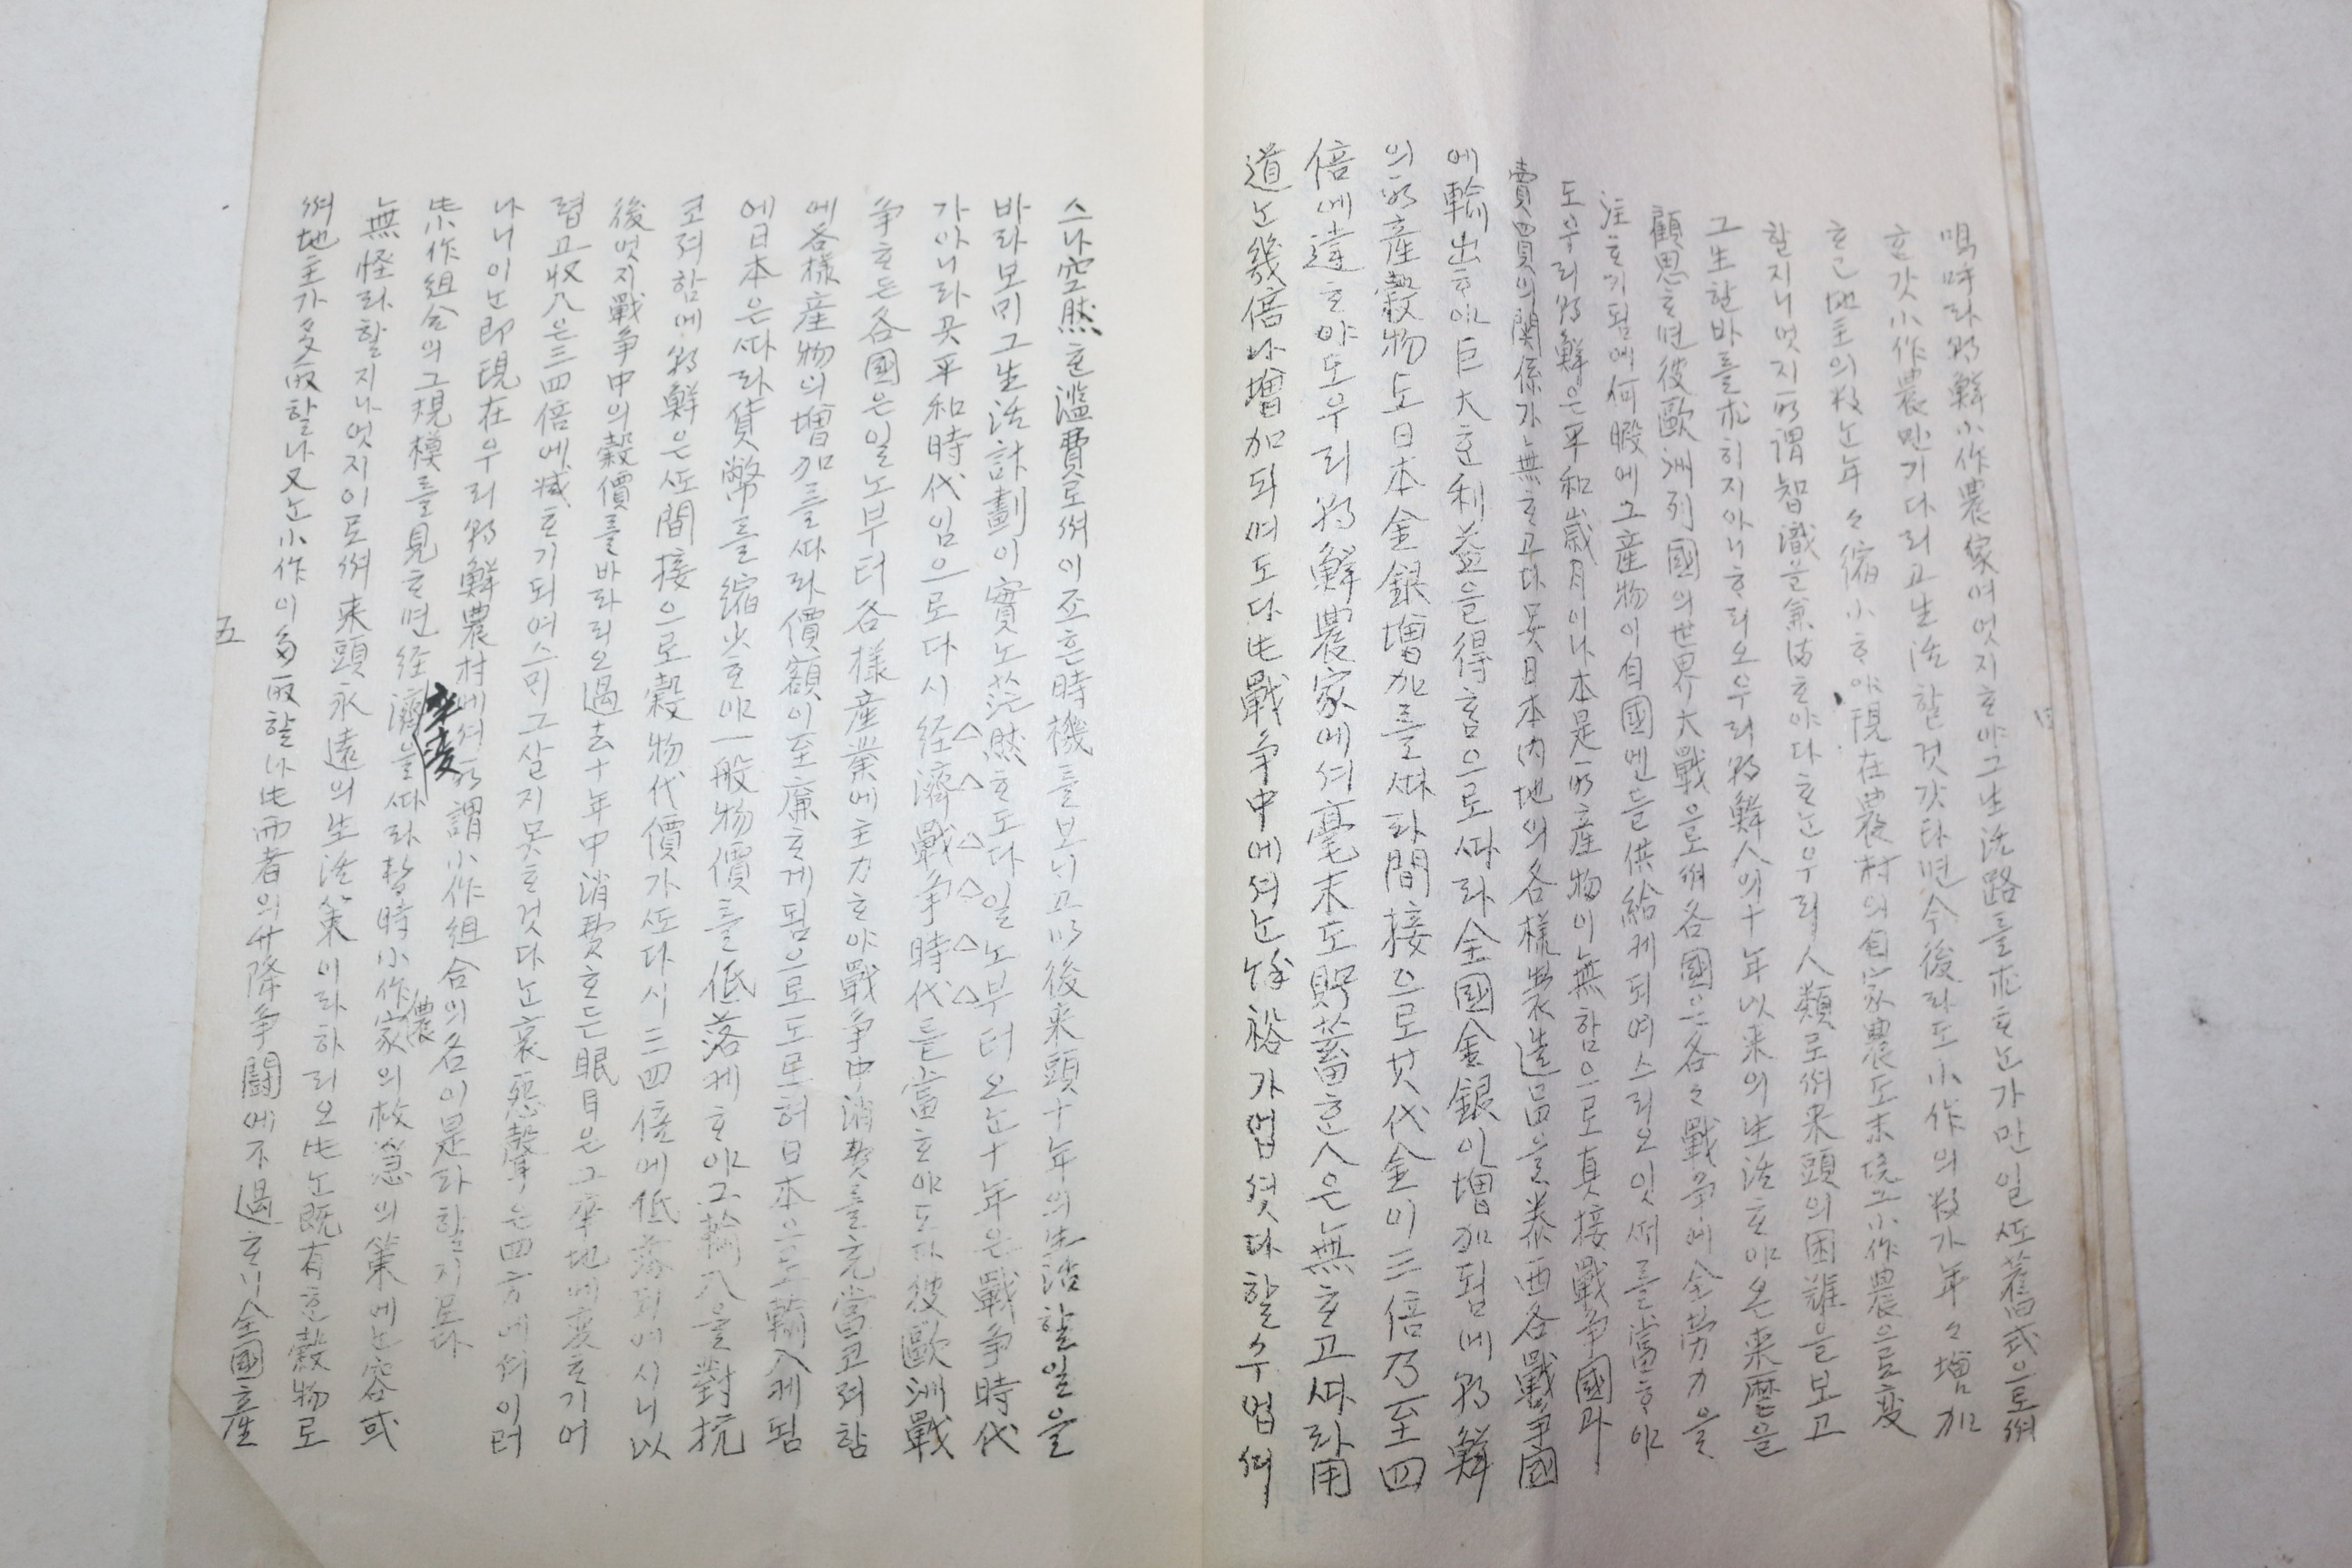 四
嗚呼라 朝鮮 小作農家여 엇지ᄒᆞ야 그 生活路를 求ᄒᆞᄂᆞᆫ가 만일 ᄯᅩ 舊式으로ᄡᅥ
ᄒᆞᆫ갓 小作農만 기다리고 生活할 것 갓타면 今後라도 小作의 數가 年々 增加
ᄒᆞ고 地主의 數ᄂᆞᆫ 年々 縮小ᄒᆞ야 現在 農村의 自家農도 末境 그 小作農으로 変
할지니 엇지 所謂 智識을 兼備ᄒᆞ야다 ᄒᆞᄂᆞᆫ 우리 人類로ᄡᅥ 来頭의 困難을 보고
그 生할 바를 求히지 아니ᄒᆞ리오 우리 朝鮮人의 十年 以来의 生活ᄒᆞ야 온 来歷을
顧思ᄒᆞ면 彼 歐洲 列國의 世界大戰으로ᄡᅥ 各國은 各々 戰争에 全 勞力을
注ᄒᆞ기 됨에 何暇에 그 産物이 自國멘들 供給케 되여스리오 잇ᄯᅢ를 當ᄒᆞ야
도 우리 朝鮮은 平和歲月이나 本是 所産物이 無함으로 直接 戰争國과
賣買의 関係가 無ᄒᆞ고 다못 日本 内地의 各樣 製造品을 泰西 各 戰争國
에 輸出ᄒᆞ야 巨大ᄒᆞᆫ 利益을 得홈으로 ᄯᅡ라 全國 金銀이 增加됨에 朝鮮
의 所産 穀物도 日本 金銀 增加를 ᄯᅡ라 間接으로 其 代金이 三倍 乃至 四
倍에 達ᄒᆞ야도 우리 朝鮮 農家에셔 毫末도 貯蓄ᄒᆞᆫ 人은 無ᄒᆞ고 ᄯᅡ라 用
道ᄂᆞᆫ 幾倍나 增加되여도다 此 戰争中에셔ᄂᆞᆫ 餘裕가 업셧다 할 수 업셔
스나 空然ᄒᆞᆫ 濫費로ᄡᅥ 이 죠흔 時機를 보니고 此後 来頭 十年의 生活할 일을
바라보미 그 生活 計劃이 實노 茫然ᄒᆞ도다 일노부터 오ᄂᆞᆫ 十年은 戰争時代
가 아니라 곳 平和時代임으로 다시 経濟戰争時代를 當ᄒᆞ야도다 彼 歐洲 戰
争ᄒᆞ든 各國은 일노부터 各樣 産業에 主力ᄒᆞ야 戰争中 消費를 充當코져 함
에 各樣 産物의 增加를 ᄯᅡ라 價額이 至廉ᄒᆞ게 됨으로 도로혀 日本으로 輸入케 됨
에 日本은 ᄯᅡ라 貨幣를 縮少ᄒᆞ야 一般 物價를 低落케 ᄒᆞ야 그 輸入을 對抗
코져 함에 朝鮮은 ᄯᅩ 間接으로 穀物代價가 ᄯᅩ다시 三四倍에 低落되여시니 以
後 엇지 戰争中의 穀價를 바라리오 過去 十年中 消費ᄒᆞ든 眼目은 그 卒地에 変ᄒᆞ기 어
렵고 收入은 三四倍에 减ᄒᆞ기 되여스미 그 살지 못ᄒᆞᆯ것다ᄂᆞᆫ 哀怨聲은 四方에셔 이러
나니 이ᄂᆞᆫ 即 現在 우리 朝鮮 農村에셔 所謂 小作組合의 名이 是라 할지로다
此 小作組合의 그 規模를 見ᄒᆞ면 経濟 을 ᄯᅡ라 暫時 小作農家의 救急의 策에ᄂᆞᆫ 容或
無怪라 할지나 엇지 이로ᄡᅥ 来頭 永遠의 生活策이라 하리오 此ᄂᆞᆫ 既有ᄒᆞᆫ 穀物로
ᄡᅥ 地主가 多取할나 又ᄂᆞᆫ 小作이 多取할나 此 両者의 升降争鬪에 不過ᄒᆞ니 全國産
五